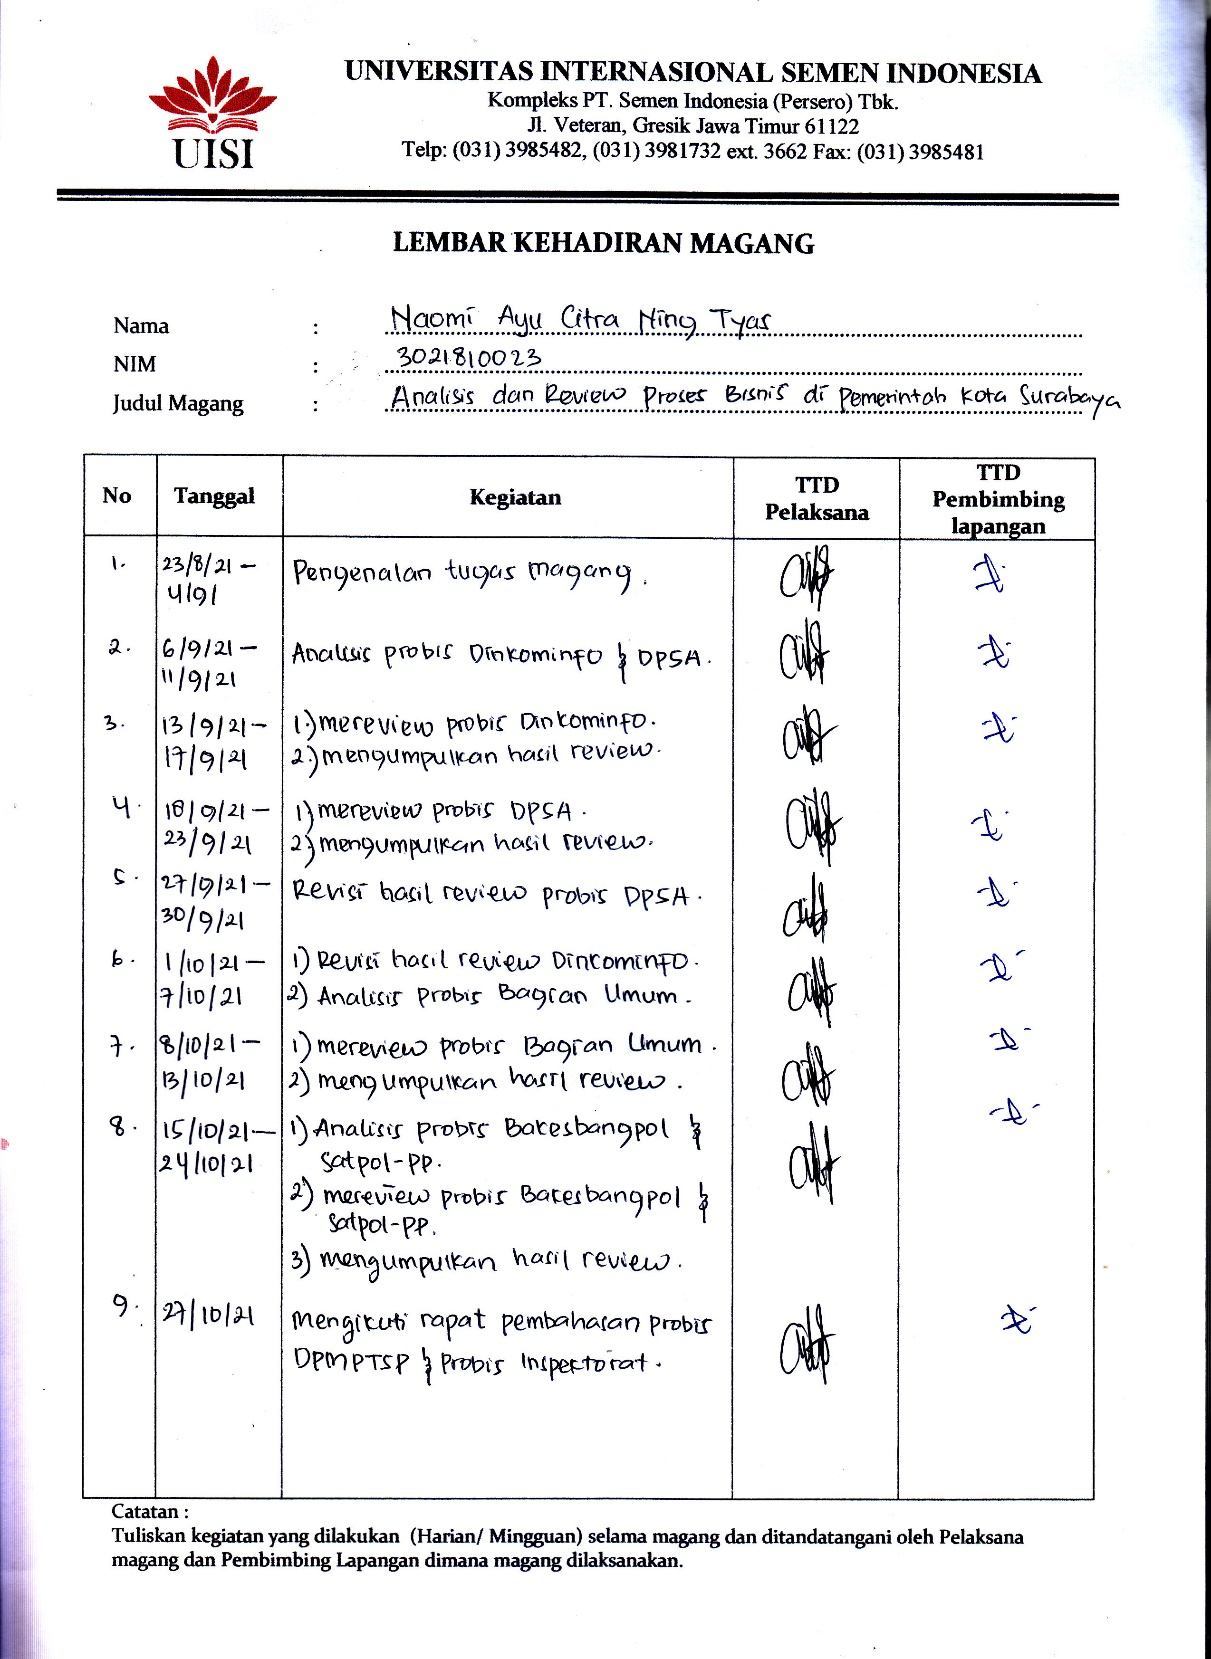 UISI
UNIVERSITAS INTERNASIONAL SEMEN INDONESIA
Kompleks PT. Semen Indonesia (Persero) Tbk.
Jl. Veteran, Gresik Jawa Timur 61122
Telp: (031) 3985482, (031) 3981732 ext. 3662 Fax: (031) 3985481
LEMBAR KEHADIRAN MAGANG
Nama : Naomi Ayu Citra Ning Tyas
NIM : 3021810023
Judul Magang : Analisis dan Review Proses Bisnis di Pemerintah Kota Surabaya
No Tanggal Kegiatan TTD Pelaksana TTD Pembimbing lapangan
1. 23/8/21 – Pengenalan tugas magang.
4/9/
2. 6/9/21 – Analisis probis Dinkominfo & DPSA.
11/9/21
3. 13/9/21 – 1.) mereview probis Dinkominfo.
17/9/21 2.) mengumpulkan hasil review.
4. 18/9/21 – 1) mereview probis DPSA.
23/9/21 2) mengumpulkan hasil review.
5. 27/9/21 – Revisi hasil review probis DPSA.
30/9/21
6. 1/10/21 – 1) Revisi hasil review Dinkominfo.
7/10/21 2) Analisis probis Bagian Umum.
7. 8/10/21 – 1) mereview probis Bagian Umum.
13/10/21 2) mengumpulkan hasil review.
8. 15/10/21 – 1) Analisis probis Bakesbangpol &
24/10/21 Satpol-PP.
2) mereview probis Bakesbangpol &
Satpol-PP.
3) mengumpulkan hasil review.
9. 27/10/21 Mengikuti rapat pembahasan probis
DPMPTSP & Probis Inspektorat.
Catatan :
Tuliskan kegiatan yang dilakukan (Harian/ Mingguan) selama magang dan ditandatangani oleh Pelaksana
magang dan Pembimbing Lapangan dimana magang dilaksanakan.